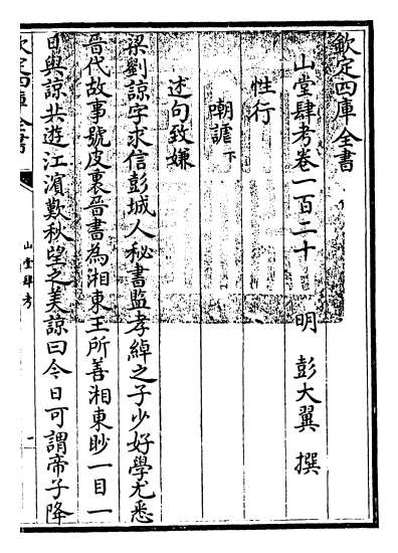 欽定四庫全書
山堂肆考卷一百二十
明 彭大翼 撰
性行
嘲謔下
述句致嫌
梁劉諒字求信彭城人秘書監孝綽之子少好學尤悉
晉代故事號皮裏晉書為湘東王所善湘東眇一目一
日與諒共遊江濱歎秋望之美諒曰今日可謂帝子降
欽定四庫全書
山堂肆考